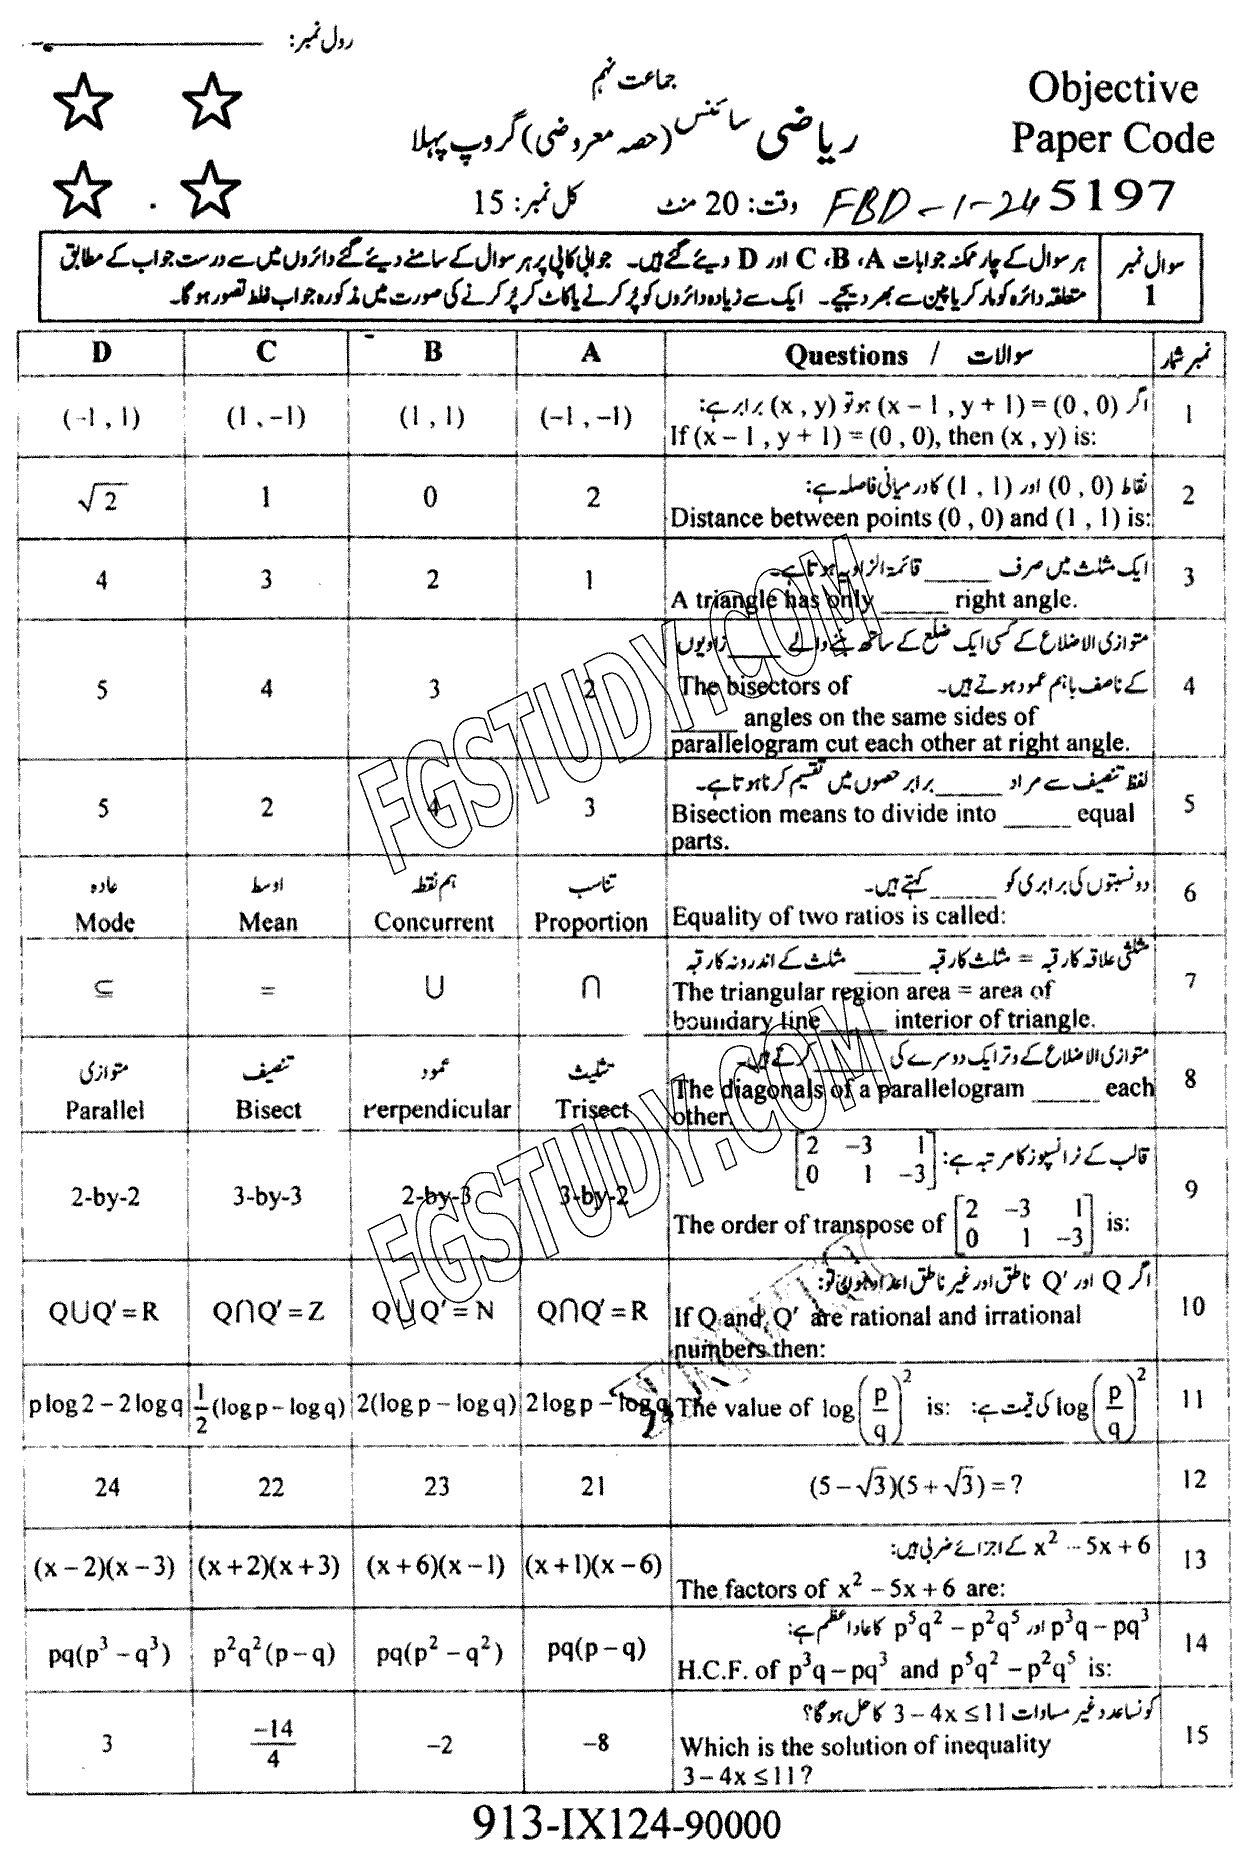 رول نمبر:
جماعت نہم
Objective
ریاضی سائنس (حصہ معروضی) گروپ پہلا
Paper Code
وقت: 20 منٹ
کل نمبر: 15
FBD-1-24
5197
سوال نمبر 1
ہر سوال کے چار ممکنہ جوابات A، B، C اور D دیئے گئے ہیں۔ جوابی کاپی پر ہر سوال کے سامنے دیئے گئے دائروں میں سے درست جواب کے مطابق
متعلقہ دائرہ کو مارکر یا پین سے بھر دیجیے۔ ایک سے زیادہ دائروں کو پُر کرنے یا کاٹ کر پُر کرنے کی صورت میں مذکورہ جواب غلط تصور ہوگا۔
D C B A Questions / سوالات نمبر شمار
1
اگر (x - 1 , y + 1) = (0 , 0) ہو تو (x , y) برابر ہے:
If (x - 1 , y + 1) = (0 , 0), then (x , y) is:
(-1 , 1) (1 , -1) (1 , 1) (-1 , -1)
2
نقاط (0 , 0) اور (1 , 1) کا درمیانی فاصلہ ہے:
Distance between points (0 , 0) and (1 , 1) is:
√2 1 0 2
3
ایک مثلث میں صرف _____ قائمۃ الزاویہ ہوتا ہے۔
A triangle has only _____ right angle.
4 3 2 1
4
متوازی الاضلاع کے کسی ایک ضلع کے ساتھ بننے والے ____ زاویوں
کے ناصف باہم عمود ہوتے ہیں۔
The bisectors of
_____ angles on the same sides of
parallelogram cut each other at right angle.
5 4 3 2
5
لفظ تنصیف سے مراد _____ برابر حصوں میں تقسیم کرنا ہوتا ہے۔
Bisection means to divide into _____ equal
parts.
5 2 4 3
6
دو نسبتوں کی برابری کو _____ کہتے ہیں۔
Equality of two ratios is called:
عادہ اوسط ہم نقطہ تناسب
Mode Mean Concurrent Proportion
7
مثلثی علاقہ کا رقبہ = مثلث کا رقبہ _____ مثلث کے اندرونہ کا رقبہ
The triangular region area = area of
boundary line_____ interior of triangle.
⊆ = ∪ ∩
8
متوازی الاضلاع کے وتر ایک دوسرے کی _____ کرتے ہیں۔
The diagonals of a parallelogram _____ each
other.
متوازی تنصیف عمود تثلیث
Parallel Bisect Perpendicular Trisect
9
قالب کے ٹرانسپوز کا مرتبہ ہے: [2 -3 1; 0 1 -3]
The order of transpose of [2 -3 1; 0 1 -3] is:
2-by-2 3-by-3 2-by-3 3-by-2
10
اگر Q اور Q′ ناطق اور غیر ناطق اعداد ہوں تو:
If Q and Q′ are rational and irrational
numbers then:
Q∪Q′ = R Q∩Q′ = Z Q∪Q′ = N Q∩Q′ = R
11
The value of log(p/q)² is: log(p/q)² کی قیمت ہے:
p log 2 - 2 log q 1/2 (log p - log q) 2(log p - log q) 2 log p - log q
12
(5 - √3)(5 + √3) = ?
24 22 23 21
13
x² - 5x + 6 کے اجزائے ضربی ہیں:
The factors of x² - 5x + 6 are:
(x - 2)(x - 3) (x + 2)(x + 3) (x + 6)(x - 1) (x + 1)(x - 6)
14
p³q - pq³ اور p⁵q² - p²q⁵ کا عاد اعظم ہے:
H.C.F. of p³q - pq³ and p⁵q² - p²q⁵ is:
pq(p³ - q³) p²q²(p - q) pq(p² - q²) pq(p - q)
15
کونسا عدد غیر مساوات 3 - 4x ≤ 11 کا حل ہوگا؟
Which is the solution of inequality
3 - 4x ≤ 11?
3 -14/4 -2 -8
913-IX124-90000
FGSTUDY.COM
FGSTUDY.COM